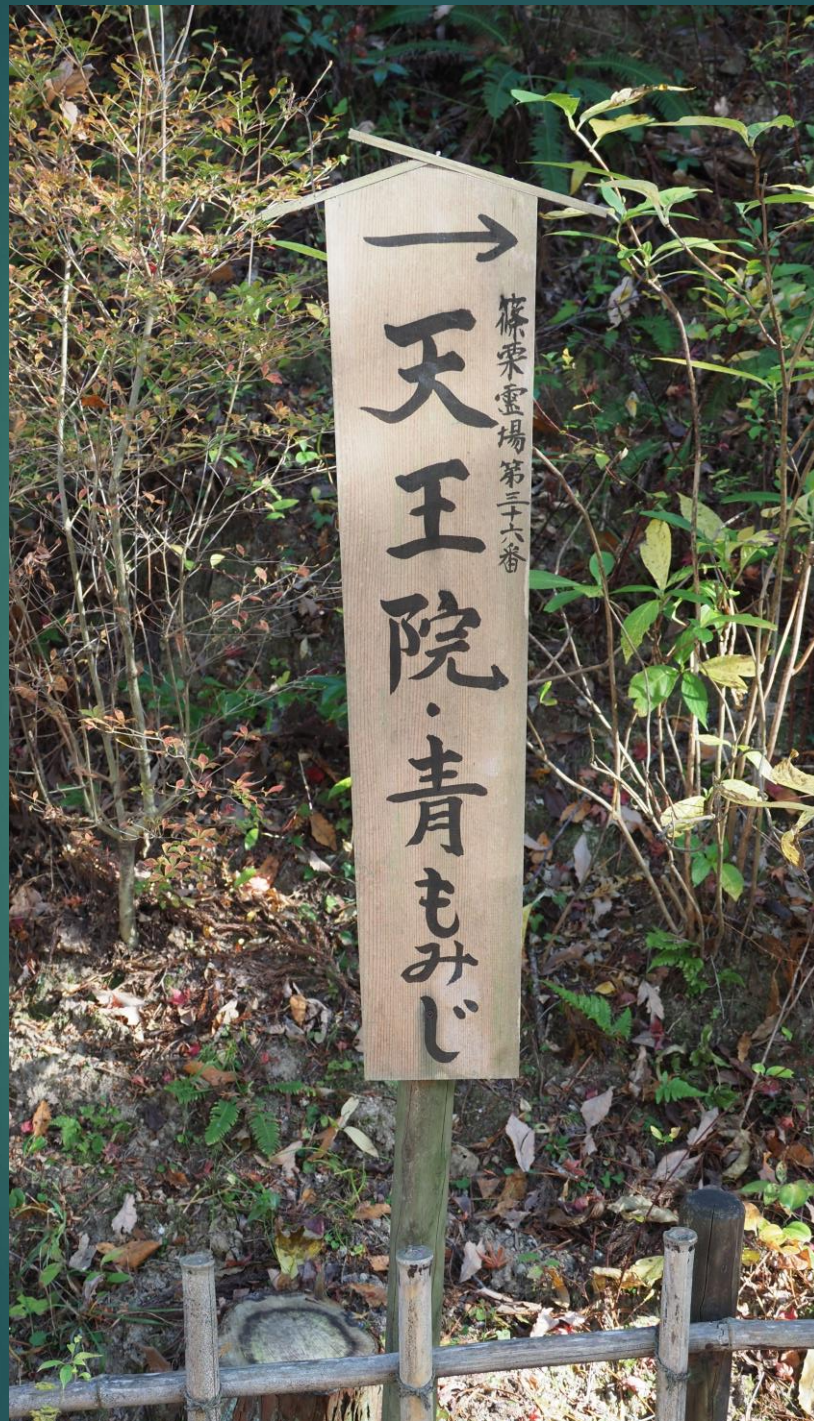 →
篠栗霊場第三十六番
天王院・青もみじ